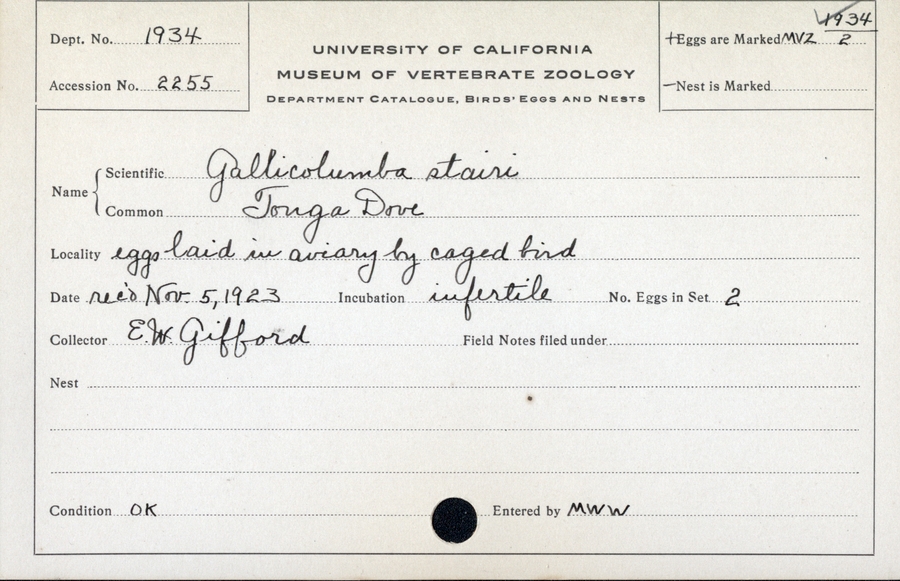 Dept. No. 1934
Accession No. 2255
UNIVERSITY OF CALIFORNIA
MUSEUM OF VERTEBRATE ZOOLOGY
DEPARTMENT CATALOGUE, BIRDS' EGGS AND NESTS
+Eggs are Marked MVZ 1934/2
—Nest is Marked
Name { Scientific Gallicolumba stairi
Common Tonga Dove
Locality eggs laid in aviary by caged bird
Date rec'd Nov. 5, 1923 Incubation infertile No. Eggs in Set 2
Collector E.W. Gifford Field Notes filed under
Nest
Condition OK Entered by MWW